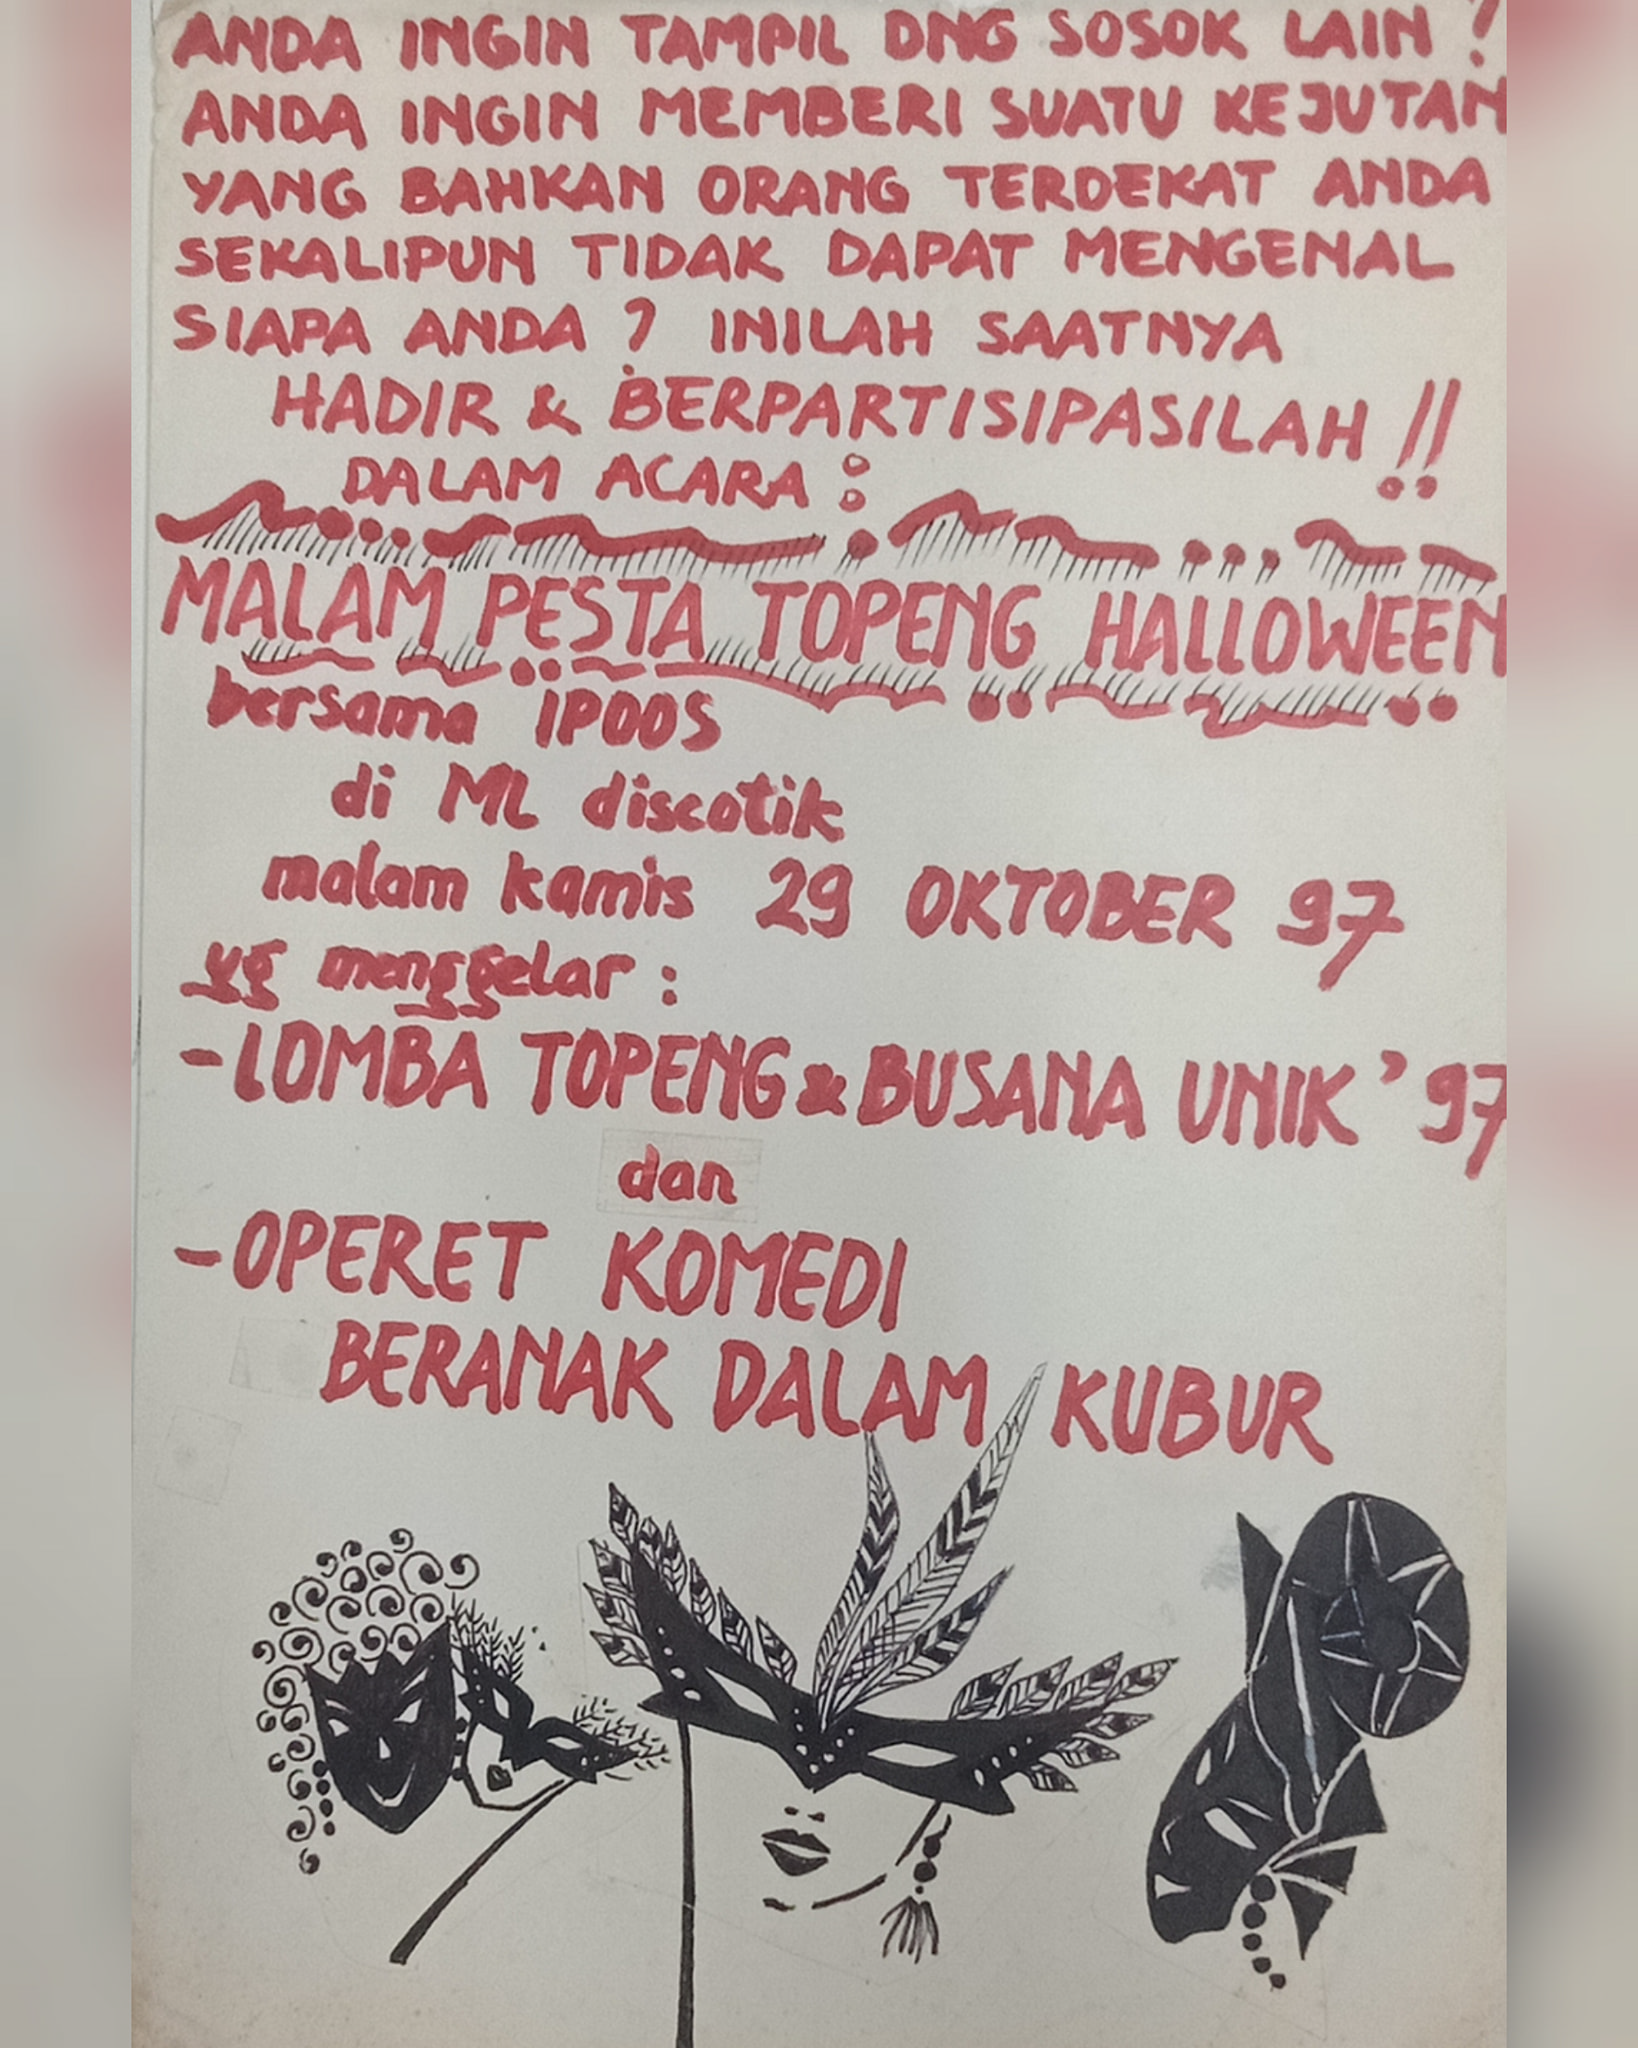 ANDA INGIN TAMPIL DNG SOSOK LAIN ?
ANDA INGIN MEMBERI SUATU KEJUTAN
YANG BAHKAN ORANG TERDEKAT ANDA
SEKALIPUN TIDAK DAPAT MENGENAL
SIAPA ANDA ? INILAH SAATNYA
HADIR & BERPARTISIPASILAH !!
DALAM ACARA :
MALAM PESTA TOPENG HALLOWEEN
bersama IPOOS
di ML discotik
malam kamis 29 OKTOBER 97
yg menggelar :
- LOMBA TOPENG & BUSANA UNIK '97
dan
- OPERET KOMEDI
BERANAK DALAM KUBUR